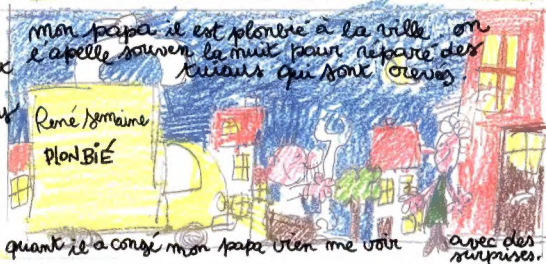 mon papa il est plonbié à la ville. on
l'apelle souven la nuit pour réparé des
tuiaus qui sont crevés.
René Semaine
PLONBIÉ
quant il a congé mon papa vien me voir avec des
surprises.